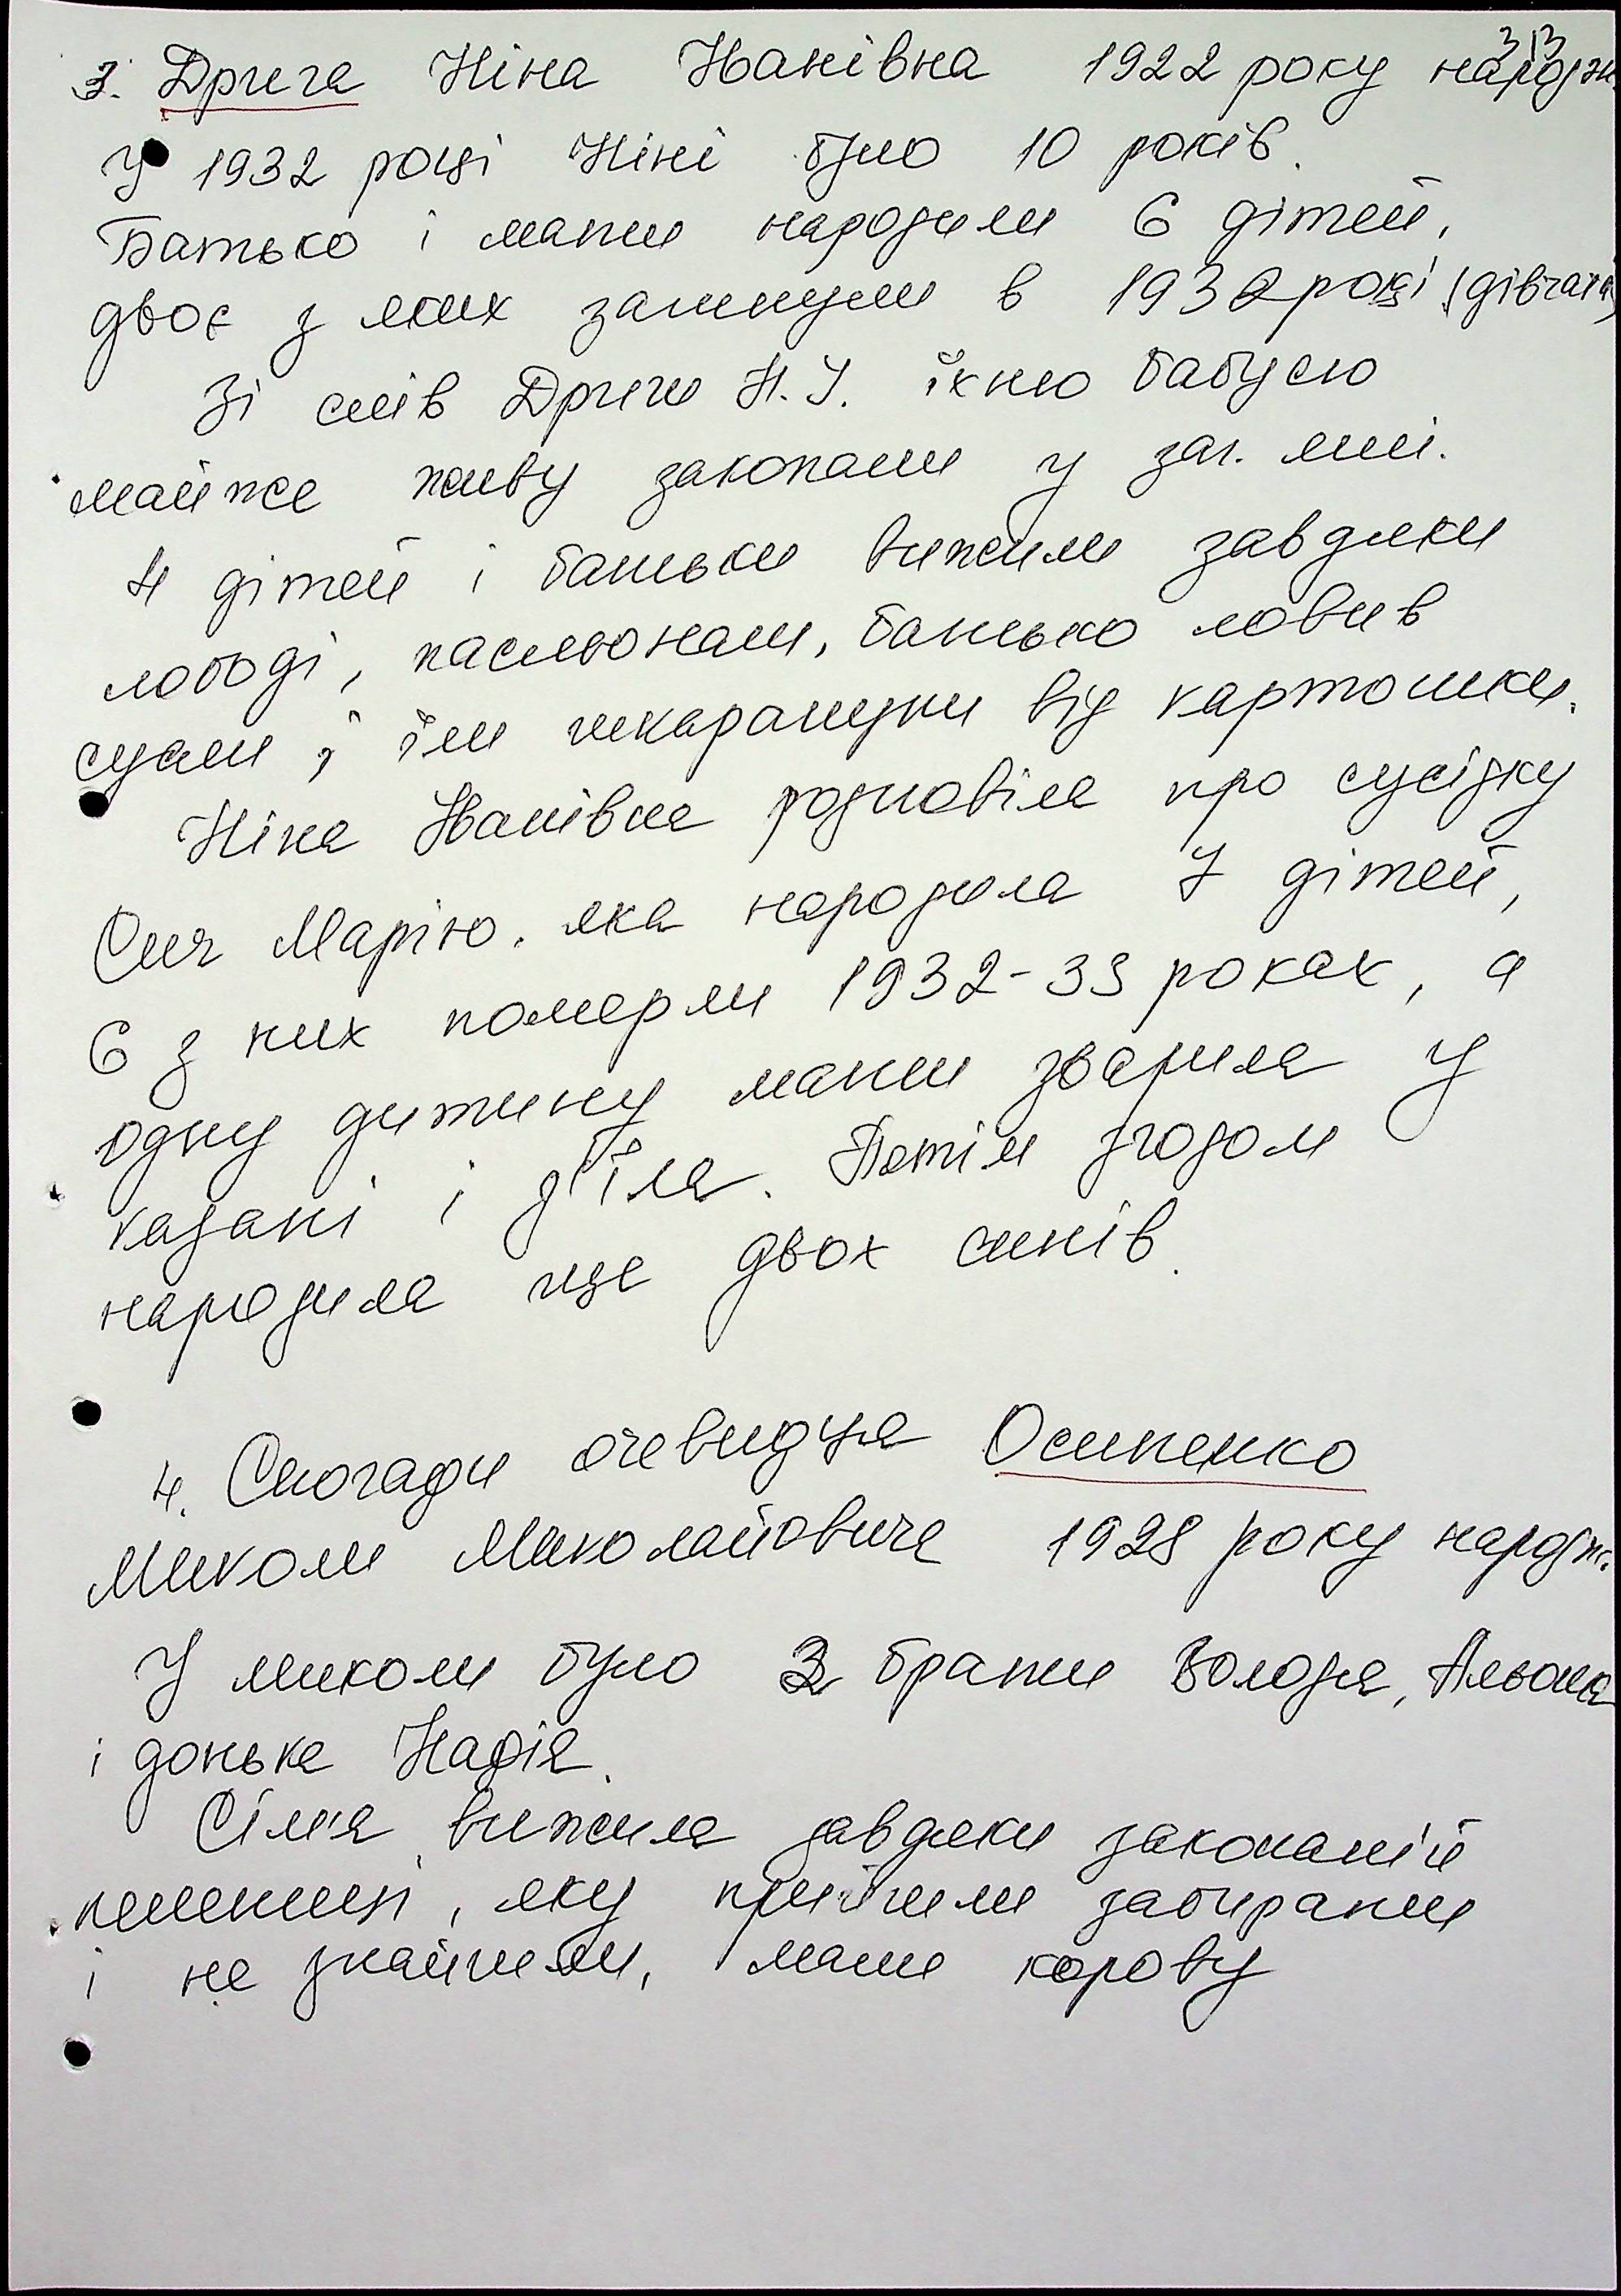 313
3. Дрига Ніна Іванівна 1922 року народж.
У 1932 році Ніні було 10 років.
Батько і мати народили 6 дітей,
двоє з яких загинули в 1932 році (дівчата)
Зі слів Дриги Н.І. їхню бабусю
майже живу закопали у заг. ямі.
4 дітей і батьки вижили завдяки
лободі, пасльонам, батько ловив
сусли, і їли шкаралупки від картошки.
Ніна Іванівна розповіла про сусідку
Сич Марію, яка народила 7 дітей,
6 з них померли 1932-33 роках, а
одну дитину мати зварила у
казані і з'їла. Потім згодом
народила ще двох синів.
4. Спогади очевидця Осипенко
Миколи Миколайовича 1928 року народж.
У миколи було 2 брати Володя, Льоня
і донька Надія.
Сім'я вижила завдяки закопаній
пшениці, яку прийшли забирати
і не знайшли, мали корову